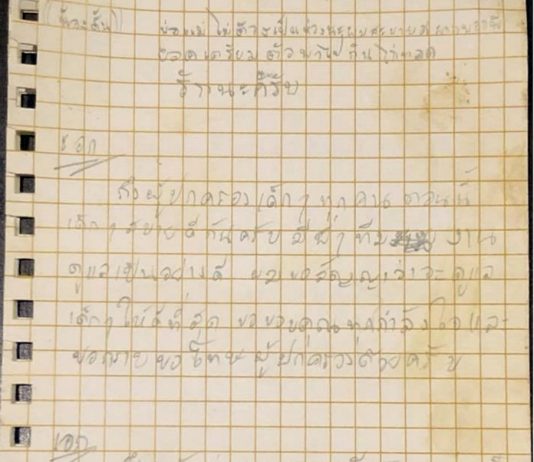 พ่อแม่ ไม่ต้องเป็นห่วงนะผมสบายดี
ยอดเตรียมตัวพาไปกินไก่ทอด
รักนะครับ
เอก
ถึงผู้ปกครองเด็กๆ ทุกคน ตอนนี้
เด็กๆ สบายดีกันครับ มีพี่ๆ ทีม งาน
ดูแลเป็นอย่างดี ผมขอสัญญาว่าจะดูแล
เด็กๆ ให้ดีที่สุด ขอขอบคุณทุกกำลังใจและ
ขอกราบขอโทษผู้ปกครองด้วยครับ
เอก